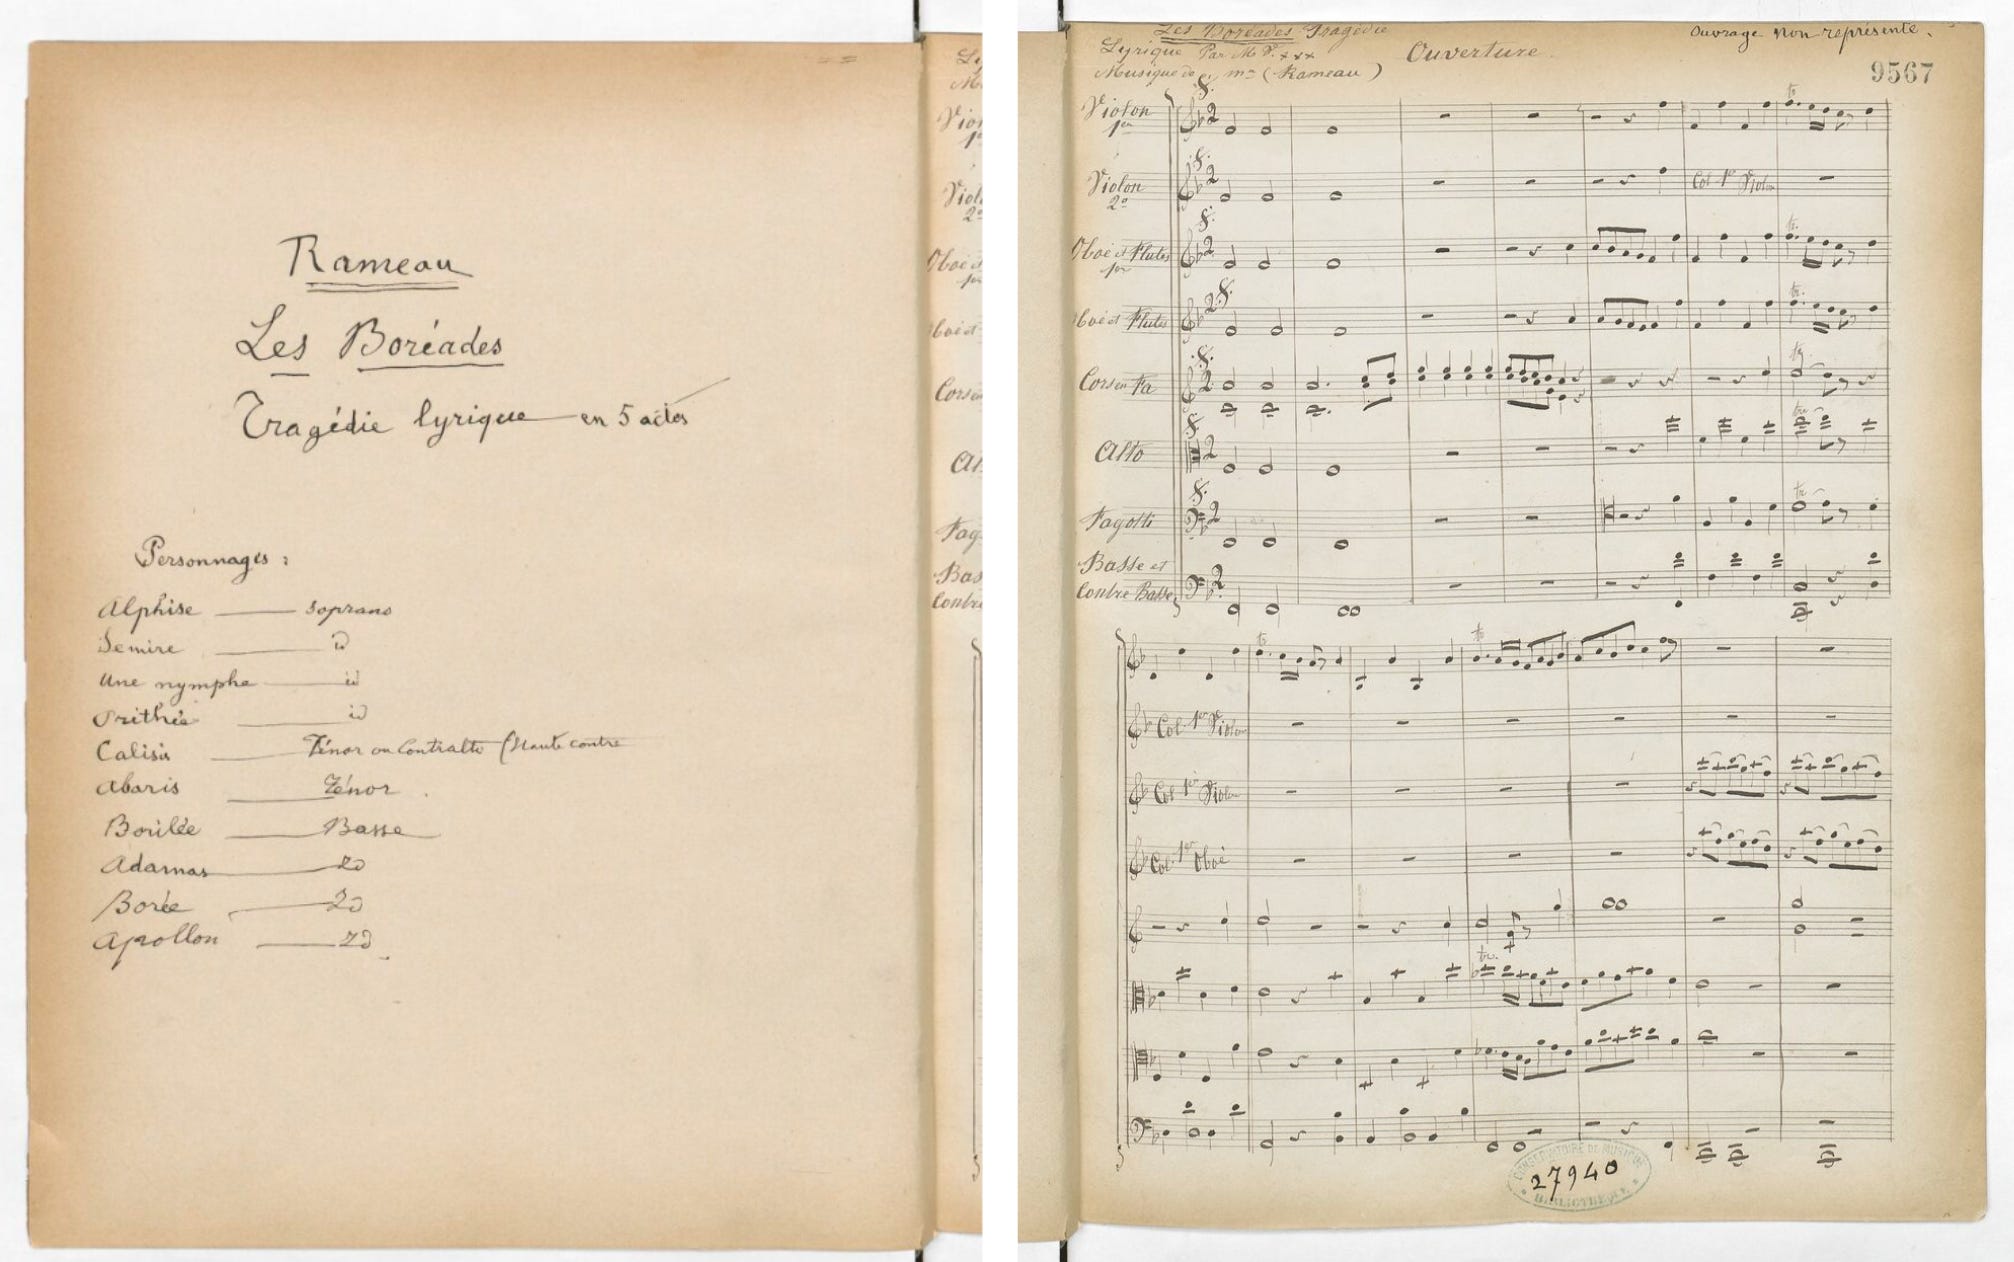 Rameau
Les Boréades
Tragédie lyrique en 5 actes
Personnages :
Alphise soprano
Semire id
Une nymphe id
Orithée id
Calisis Ténor ou Contralto (Haute contre
Abaris Ténor
Borilée Basse
Adamas id
Borée id
Apollon id
Les Boréades Tragédie
Lyrique Par M
Musique de (Rameau)
Ouverture
Ouvrage non représenté.
9567
Violon
1er
Violon
2º
Col 1er Violon
Oboe et Flutes
1er
Oboe et Flutes
Cors en Fa
Alto
Fagotti
Basse et
Contre Basse
Col 1er Violon
Col 1er Violon
Col 1er Oboé
CONSERVATOIRE DE MUSIQUE
27940
BIBLIOTHEQUE